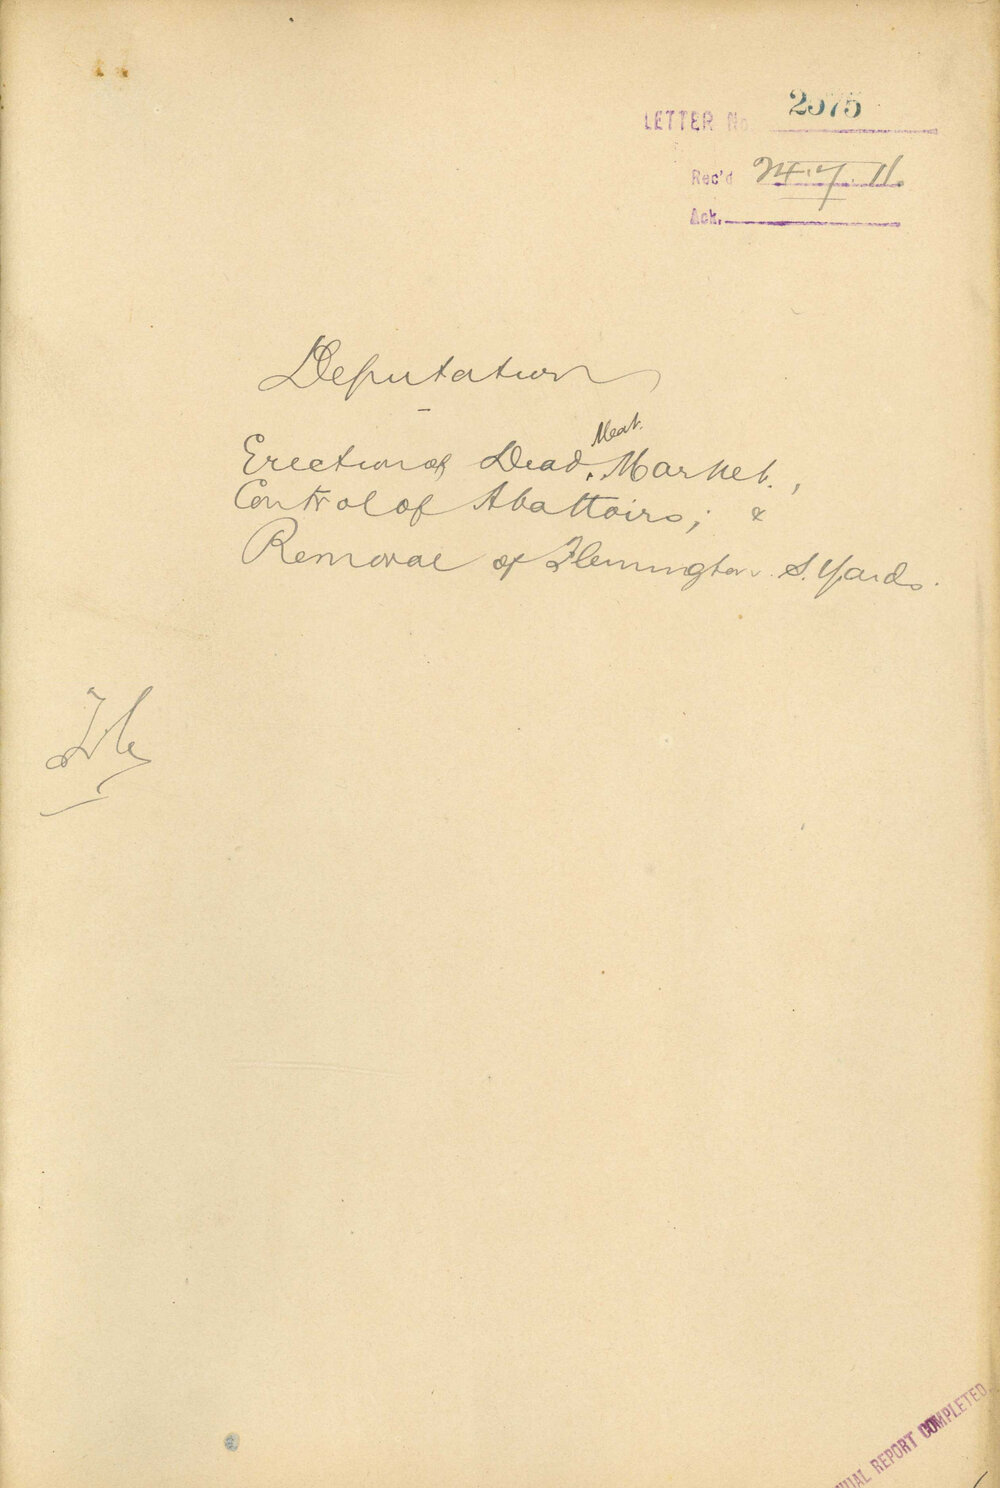 LETTER No. 2575
Rec'd 24.7.11.
Ack.
Deputation
Meat.
Erection of Dead Market.,
Control of Abattoirs; &
Removal of Flemington S. Yards.
File
REPORT COMPLETED